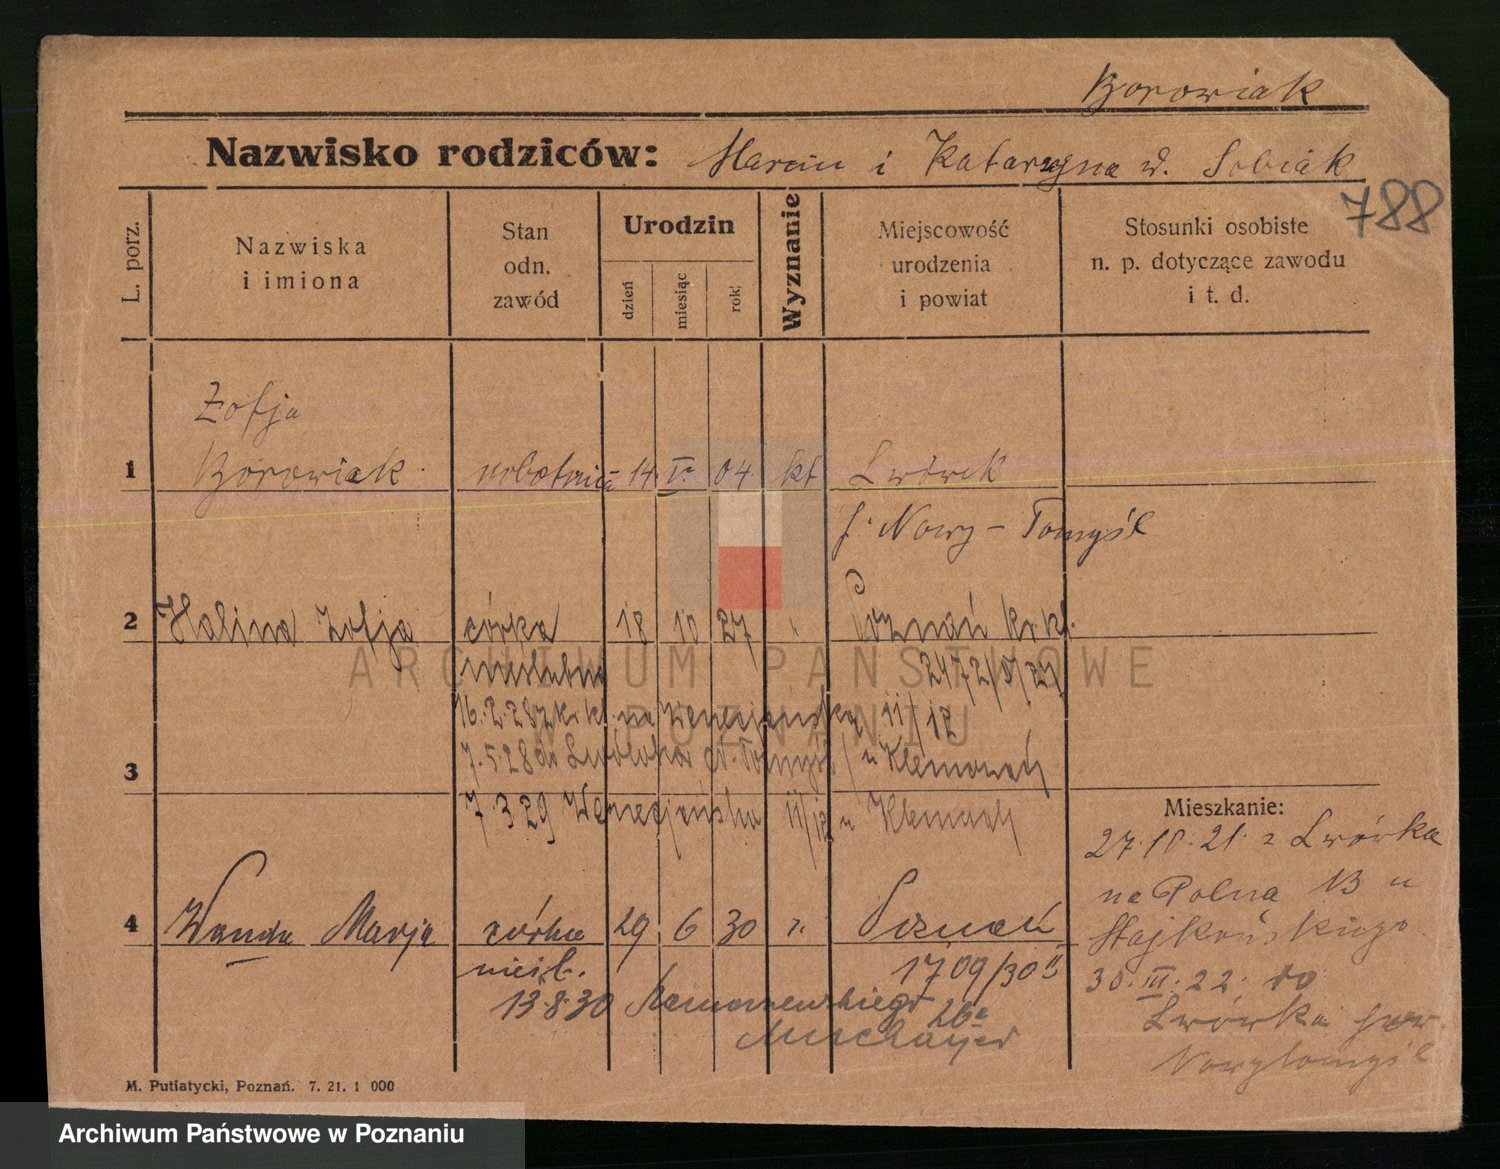 Borowiak
Nazwisko rodziców: Marcin i Katarzyna d. Sobiak
788
L. porz.
Nazwiska
i imiona
Stan
odn.
zawód
Urodzin
dzień
miesiąc
rok
Wyznanie
Miejscowość
urodzenia
i powiat
Stosunki osobiste
n. p. dotyczące zawodu
i t. d.
Zofja
1 Borowiak robotnica 14. V. 04 kt Lwówek
Nowy-Tomyśl
2 Halina Zofja córka 18 10 27 " Poznań
nieślubna 2472/
16.2.28 na Wenecjańska 11/12
3 7.5.28 do Lwówka u
7.3.29 Wenecjańska 11/12 u
Mieszkanie:
27.10.21. z Lwówka
na Polna 13 u
4 Wanda Marja córka 29 6 30 " Poznań
nieśl. 1709/30 II
30.III.22. do
13.8.30 26a
Lwówka pow.
Nowytomyśl
M. Putiatycki, Poznań. 7. 21. 1 000
ARCHIWUM PAŃSTWOWE
W POZNANIU
Archiwum Państwowe w Poznaniu